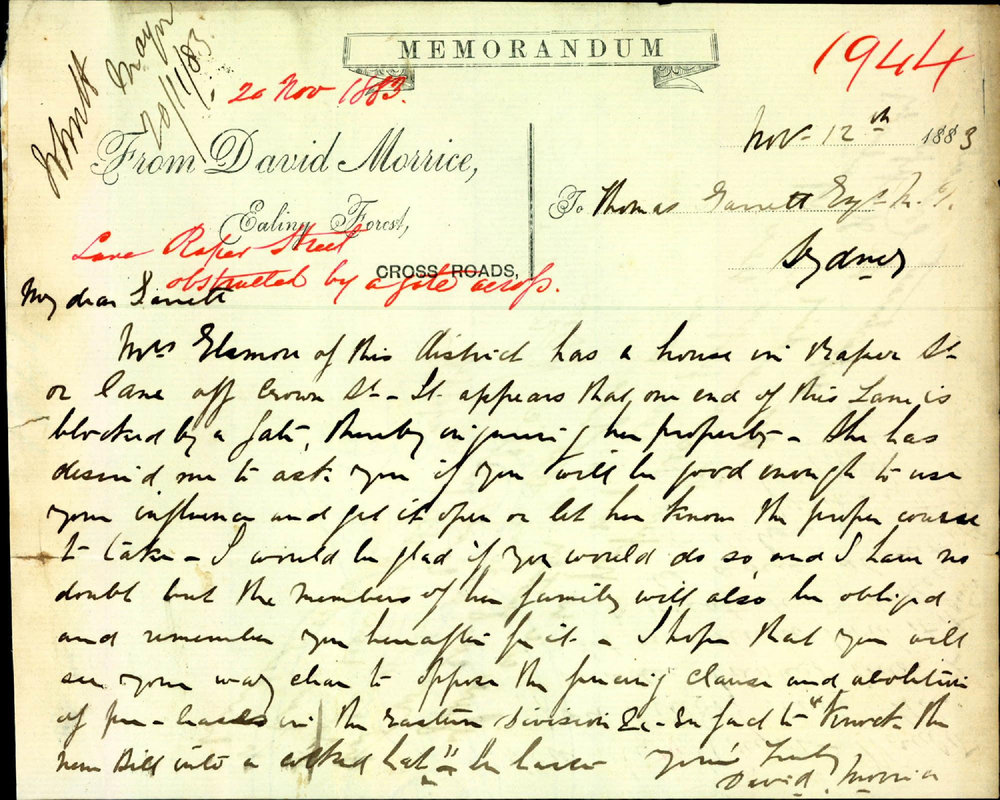 MEMORANDUM
1944
Mayor
20/11/83
20 Nov 1883.
Nov 12th 1883
From David Morrice,
To Thomas Garrett Esqr M.P.
Ealing Forest,
Sydney
CROSS ROADS,
Lane Raper Street
obstructed by a gate across.
My dear Garrett
Mrs Elsmore of this district has a house in Raper St
or lane off Crown St - It appears that one end of this Lane is
blocked by a gate, thereby injuring her property - She has
desired me to ask you if you will be good enough to use
your influence and get it open or let her know the proper course
to take - I would be glad if you would do so and I have no
doubt but the members of her family will also be obliged
and remember you hereafter for it - I hope that you will
see your way clear to oppose the fencing clause and abolition
of pre-leases in the Eastern Division &c - In fact to "Knock the
new Bill into a cocked hat"
Yours truly
David Morrice